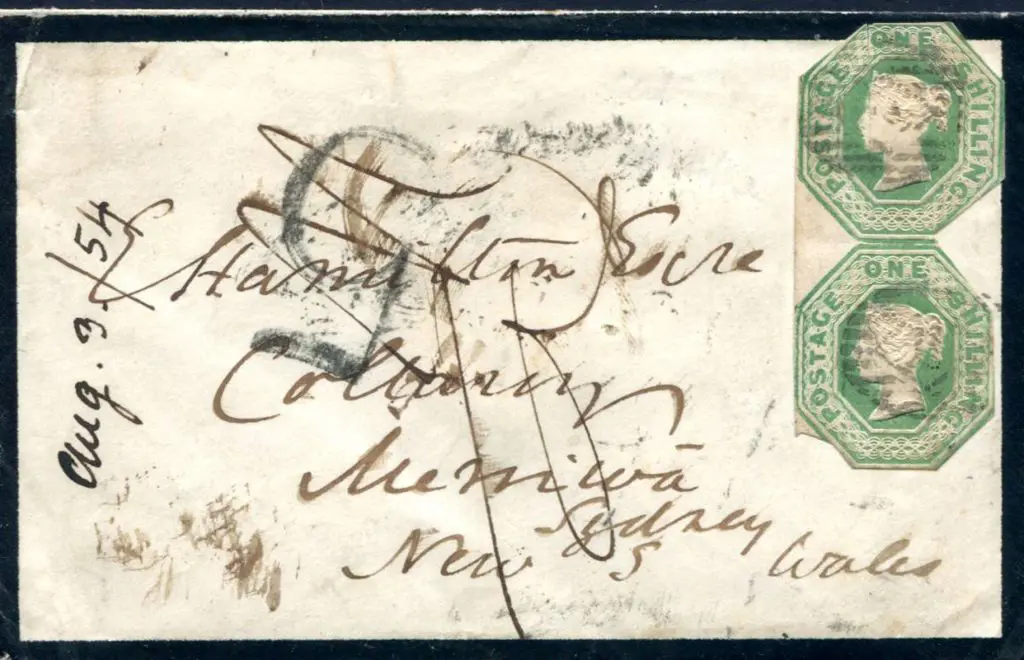 ONE SHILLING POSTAGE
ONE SHILLING POSTAGE
Aug. 3. / 54
Hamilton Esqre
Merriwa
Sydney
New S Wales